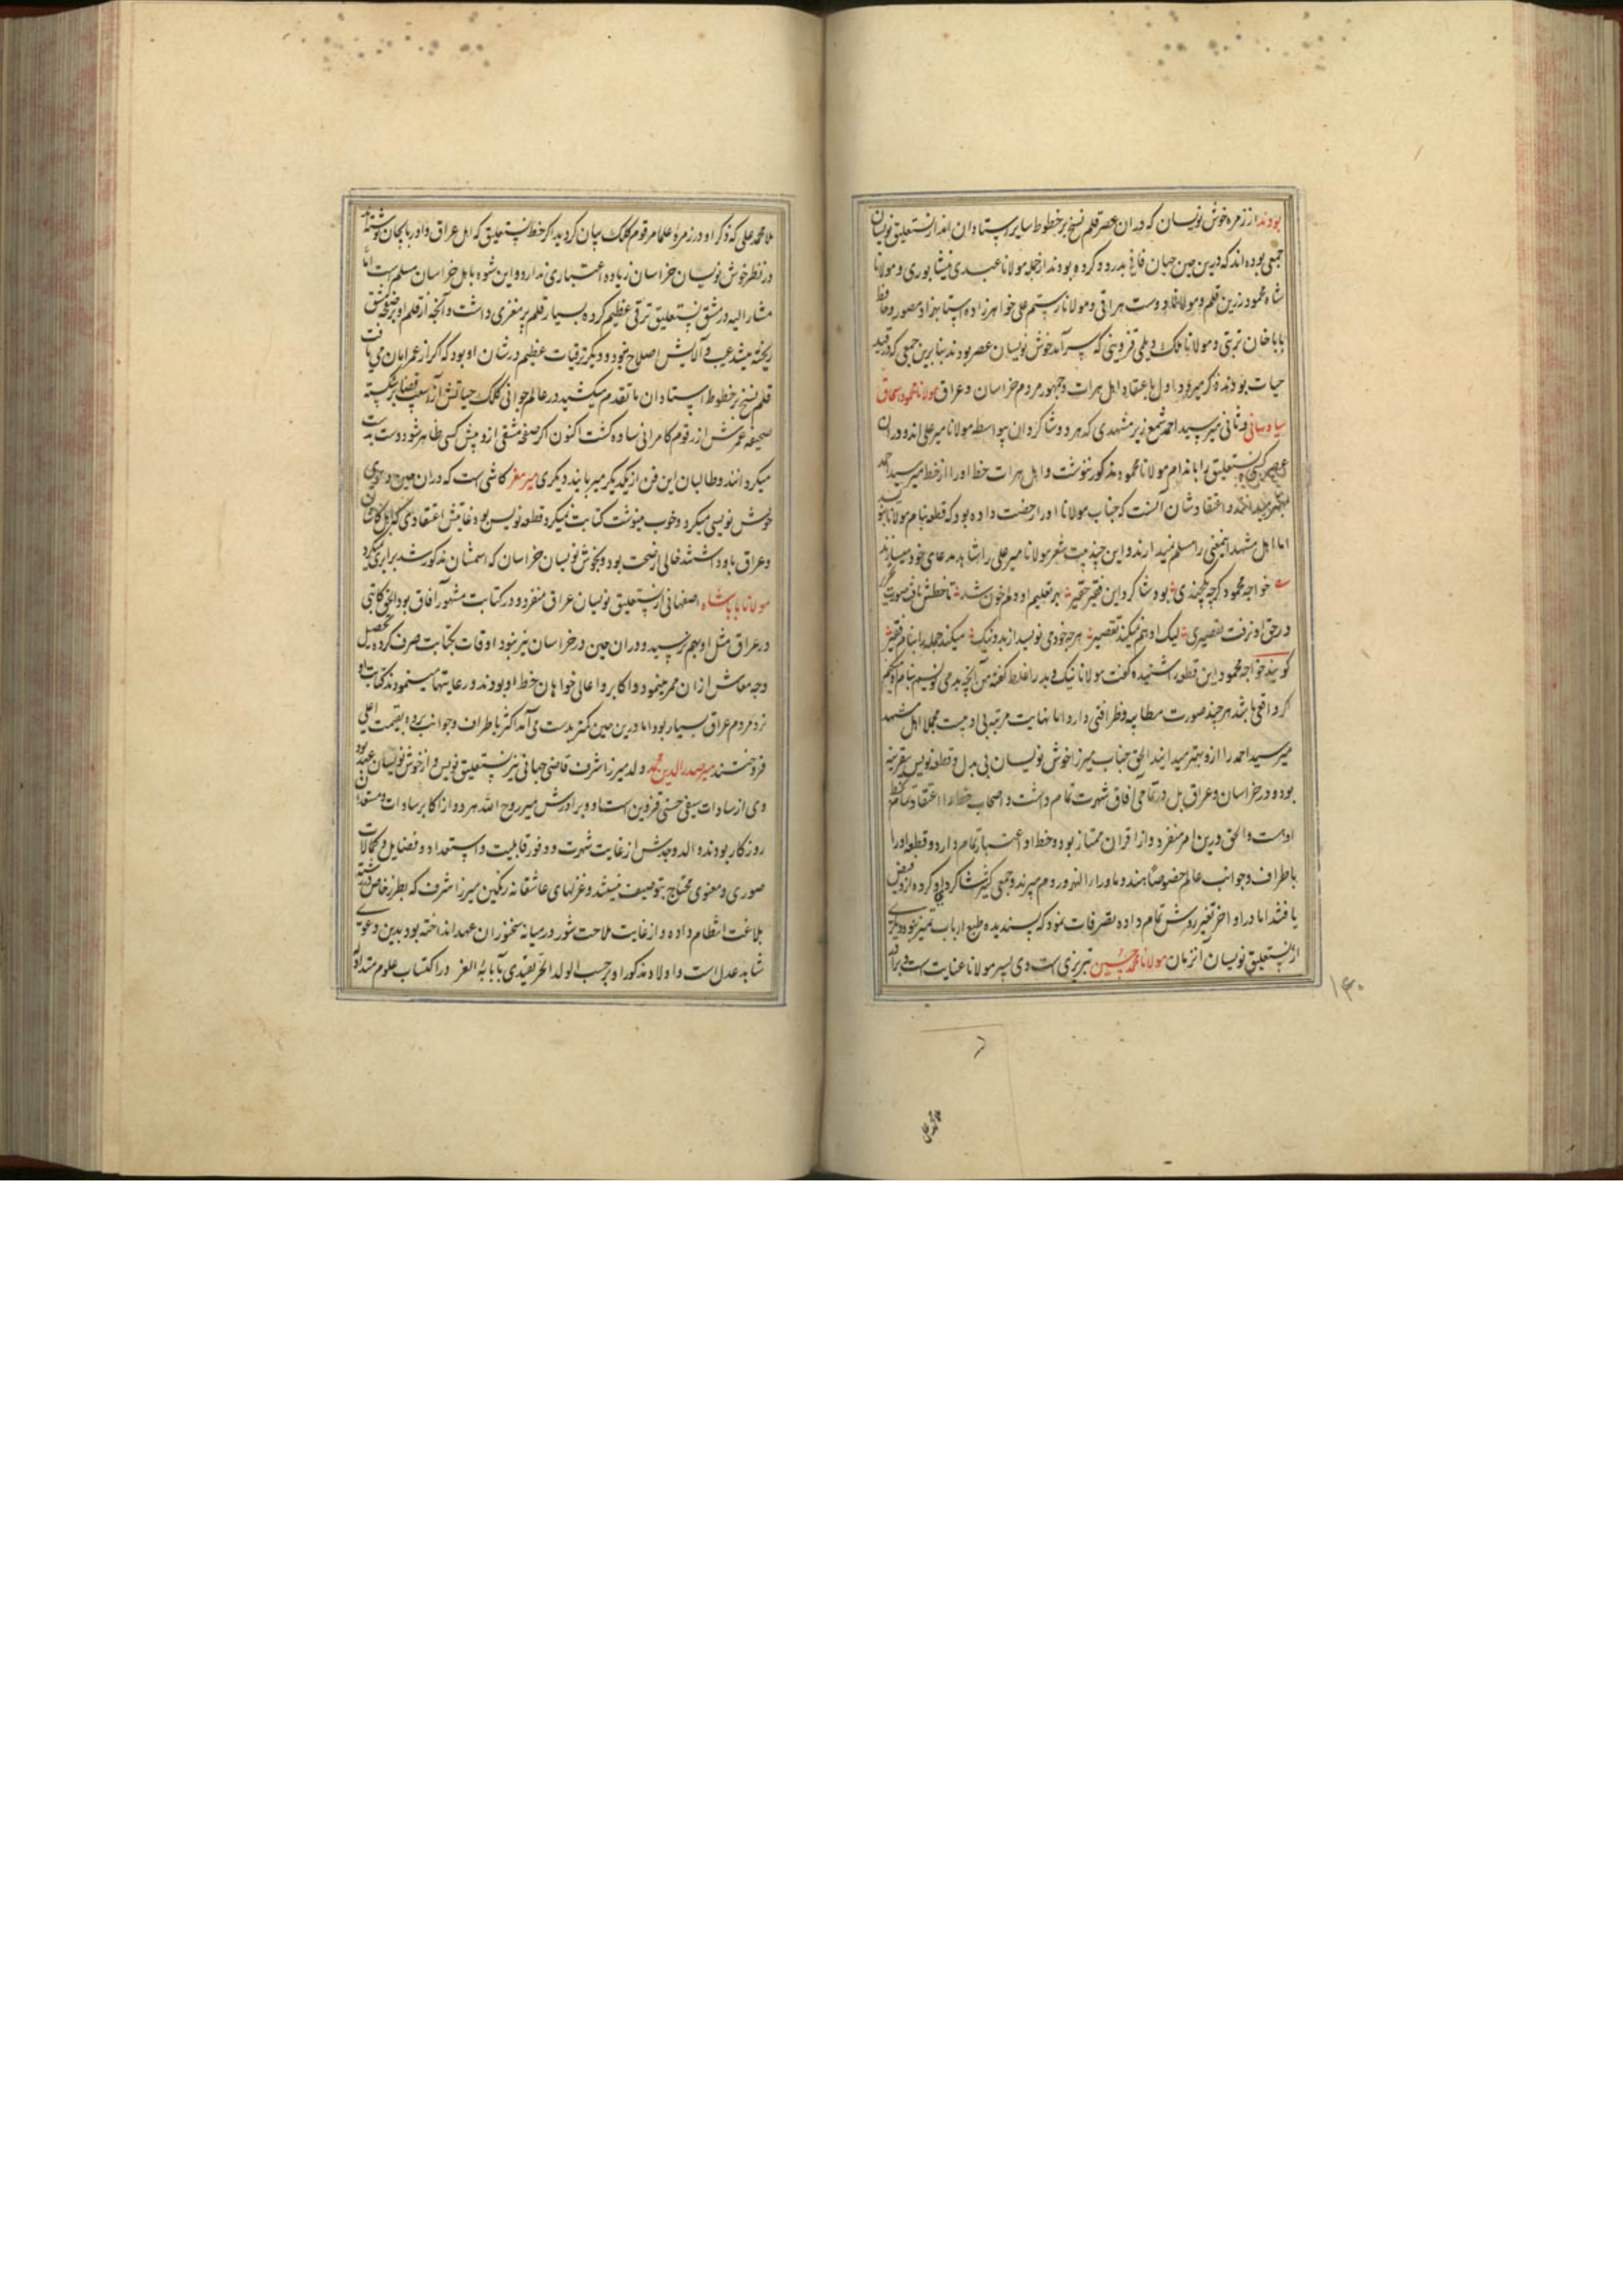 بودند از زمره خوش نویسان که در آن عصر قلم نسخ بر خطوط سایر استادان انداز نستعلیق نویسان
جمعی بوده اند که درین حین جهان فانی بدرود کرده بودند از جمله مولانا عبدی نیشابوری و مولانا
شاه محمود زرین قلم و مولانا دوست هراتی و مولانا رستم علی خواهرزاده استاد بهزاد مصور و حافظ
بابا جان تربتی و مولانا مالک دیلمی قزوینی که سرآمد خوش نویسان عصر بودند بنابرین جمعی که در قید
حیات بودند ذکر میرود اول باعتقاد اهل هرات و جمهور مردم خراسان و عراق مولانا محمود اسحاق
سیاوشانی و ثانی میر سید احمد شمع ریز مشهدی که هر دو شاگردان بیواسطه مولانا میر علی اند و در آن
عصر کسی نستعلیق را باندام مولانا محمود مذکور ننوشت و اهل هرات خط او را از خط میر سید احمد
بهتر میدانند و اعتقادشان آنست که جناب مولانا او را رخصت داده بود که قطعه بنام مولانا نویسد
اما اهل مشهد اینمعنی را مسلم نمیدارند و این چند بیت شعر مولانا میر علی را شاهد مدعای خود میسازند
خواجه محمود گرچه یکچندی بود شاگرد این فقیر حقیر بهر تعلیم او دلم خون شد تا خطش یافت صورت تحریر
در حق او نرفت تقصیری لیک او هم نمیکند تقصیر هرچه خود می نویسد از بد و نیک میکند جمله را بنام فقیر
گویند خواجه محمود این قطعه را شنیده گفت مولانا نیک و بد را غلط گفته من آنچه بد می نویسم بنام او میکنم
گر واقعی باشد هر چند صورت مطایبه و ظرافتی دارد اما نهایت مرتبه بی ادبیست مجملا اهل مشهد
میر سید احمد را ازو بهتر میدانند الحق جناب میر از خوش نویسان بی بدل و قطعه نویس بیقرینه
بود و در خراسان و عراق بل در تمامی آفاق شهرت تمام داشت و اصحاب خط را اعتقاد تمام بخط
اوست و الحق درین امر منفرد و از اقران ممتاز بود و خط او اعتبار تمام دارد و قطعه او را
باطراف و جوانب عالم خصوصا هند و ماوراء النهر و روم میبرند و جمعی کثیر شاگردی او کرده ازو فیض
یافتند اما در اواخر تغییر روش تمام داده تصرفات نمود که پسندیده طبع ارباب تمیز نبود و دیگری
از نستعلیق نویسان آنزمان مولانا محمد حسین تبریزی است وی پسر مولانا عنایت است و برادر
۱۴۰
ملا محمد علی که ذکر او در زمره علما مرقوم کلک بیان گردید اگر خط نستعلیق که اهل عراق و آذربایجان نوشته اند
در نظر خوش نویسان خراسان زیاده اعتباری ندارد و این شیوه باهل خراسان مسلم است اما
مشار الیه در مشق نستعلیق ترقی عظیم کرده بسیار قلم پر مغزی داشت و آنچه از قلم او بر صفحه مشق
ریخته میشد عیب و آلایش اصلاح نبود و دیگر ترقیات عظیم در شأن او بود که اگر از عمر امان می یافت
قلم نسخ بر خطوط استادان ما تقدم میکشید در عالم جوانی کلک حیاتش از آسیب قضا بر شکسته
صحیفه عمرش از رقوم کامرانی ساده گشت اکنون اگر صفحه مشقی ازو پیش کسی ظاهر شود دست بدست
میگردانند و طالبان این فن از یکدیگر میربایند دیگری میر معز کاشی است که در آن حین دعوی
خوش نویسی میکرد و خوب مینوشت کتابت نمیکرد قطعه نویس بود غایتش اعتقادی که اهل کاشان
و عراق باو داشتند خالی از صحت بود و بخوش نویسان خراسان که اسمشان مذکور شد برابری میکرد
مولانا باباشاه اصفهانی از نستعلیق نویسان عراق منفرد و در کتابت مشهور آفاق بود الحق کاتبی
در عراق مثل او بهم نرسید و در آن حین در خراسان نیز نبود اوقات بکتابت صرف کرده تحصیل
وجه معاش از آن ممر مینمود و اکابر و اعالی خواهان خط او بودند و رعایتها مینمودند کتابت او
نزد مردم عراق بسیار بود اما درین حین کمتر بدست می آمد اکثر باطراف و جوانب برده بقیمت اعلی
فروختند میر صدرالدین محمد ولد میرزا شرف قاضی جهانی نیز نستعلیق نویس و از خوش نویسان عهد بود
وی از سادات سیفی حسنی قزوین است او و برادرش میر روح الله هر دو از اکابر سادات و مستعدان
روزگار بودند والد و جدش از غایت شهرت و وفور قابلیت و استعداد و فضایل و کمالات
صوری و معنوی محتاج بتوصیف نیستند و غزلهای عاشقانه رنگین میرزا شرف که بطرز خاص در رشته
بلاغت انتظام داده و از غایت ملاحت شور در میانه سخنوران عهد انداخته بود بدین دعوی
شاهد عدل است و اولاد مذکور او بر حسب الولد الحر یقتدی بآبائه الغر در اکتساب علوم متداوله